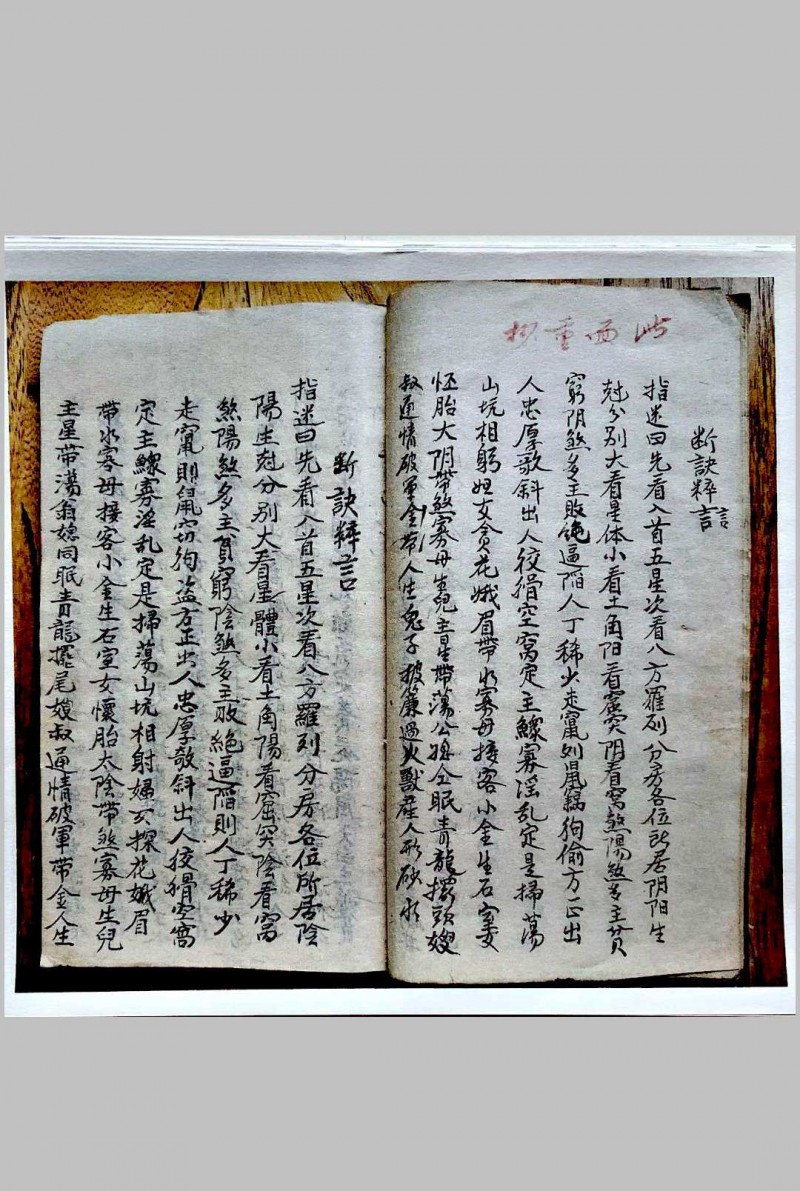 此面重抄
断訣粹言
言
指迷曰先看入首五星次看八方羅列分房各位所居阴阳生
尅分别大看星体小看土角阳看窟突阴看窝煞陽煞多主貧
窮阴煞多主敗绝逼陷人丁稀少走竄则鼠竊狗偷方正出
人忠厚欹斜出人狡猾空窝定主鰥寡淫乱定是掃蕩
山坑相躬妇女貪花娥眉帶水寡母接客小金生石室女
怀胎大阴帶煞寡母生兒主星帶蕩公媳仝眠青龍擺頭嫂
叔通情破軍金帶人生鬼子披簾過火獸產人形砂水
断訣粹言
指迷曰先看入首五星次看八方羅列分房各位所居陰
陽生尅分别大看星體小看土角陽看窟突陰看窩
煞陽煞多主貧窮陰煞多主敗絕逼陷則人丁稀少
走竄則鼠窃狗盗方正出人忠厚欹斜出人狡猾空窩
定主鰥寡淫乱定是掃蕩山坑相射婦女探花娥眉
帶水寡母接客小金生石室女懷胎太陰帶煞寡母生兒
主星帶蕩翁媳同眠青龍擺尾嫂叔通情破軍帶金人生